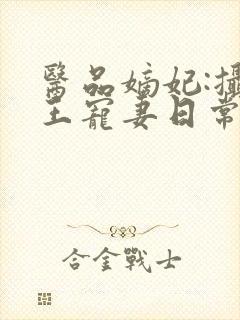 醫品嫡妃:攝
王寵妻日常
合金戰士